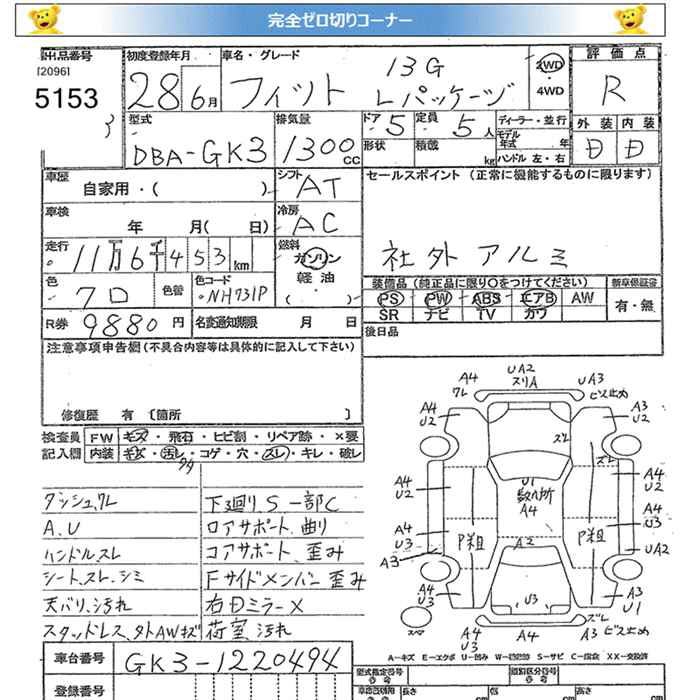 完全ゼロ切りコーナー
出品番号 初度登録年月 車名・グレード 評価点
[2096]
5153
28年 6月 フィット 13G Lパッケージ 2WD・4WD R
型式 排気量 ドア 定員 ディーラー・並行 外装 内装
DBA-GK3 1300cc 5 5人 モデル年式 年 D D
形状 積載 kg ハンドル 左・右
車歴 シフト セールスポイント (正常に機能するものに限ります)
自家用・( ) AT
車検 冷房
年 月( 日) AC
走行 燃料 社外アルミ
11万6千453km ガソリン・軽油・( )
装備品 (純正品に限り○をつけてください) 新車保証書
色 色替 色コード PS PW ABS エアB AW 有・無
クロ NH731P SR ナビ TV カワ
R券 9880円 名変通知期限 月 日 後日品
注意事項申告欄 (不具合内容等は具体的に記入して下さい)
修復歴 有〔箇所 〕
検査員 FW キズ・飛石・ヒビ割・リペア跡・×要
記入欄 内装 キズ・汚レ・コゲ・穴・スレ・キレ・破レ
ダッシュ、ワレ 下回り、S一部C
A、U ロアサポート、曲り
ハンドル、スレ コアサポート、歪み
シート、スレ、シミ Fサイドメンバー歪み
天バリ、汚れ 右Dミラー X
スタッドレス、外AWキズ 荷室、汚れ
A4 ワレ UA2 スリA UA3 ビス止め
A4 U2 A3 U2
スレ スレ
A4 U2 U1 数ヶ所 A4 A4 U2
A4 U3 P粗 P粗 A4 U3
A3 A2 UA2
A4 U3 U3 A3 U1
スペア A4 U3 UA4 スレ A3 ビス止め
A-キズ E-エクボ U-凹み W-補修跡 S-サビ C-腐食 XX-交換済
車台番号 GK3-1220494
登録番号
型式指定番号 類別区分番号
長さ cm 幅 cm 高さ cm